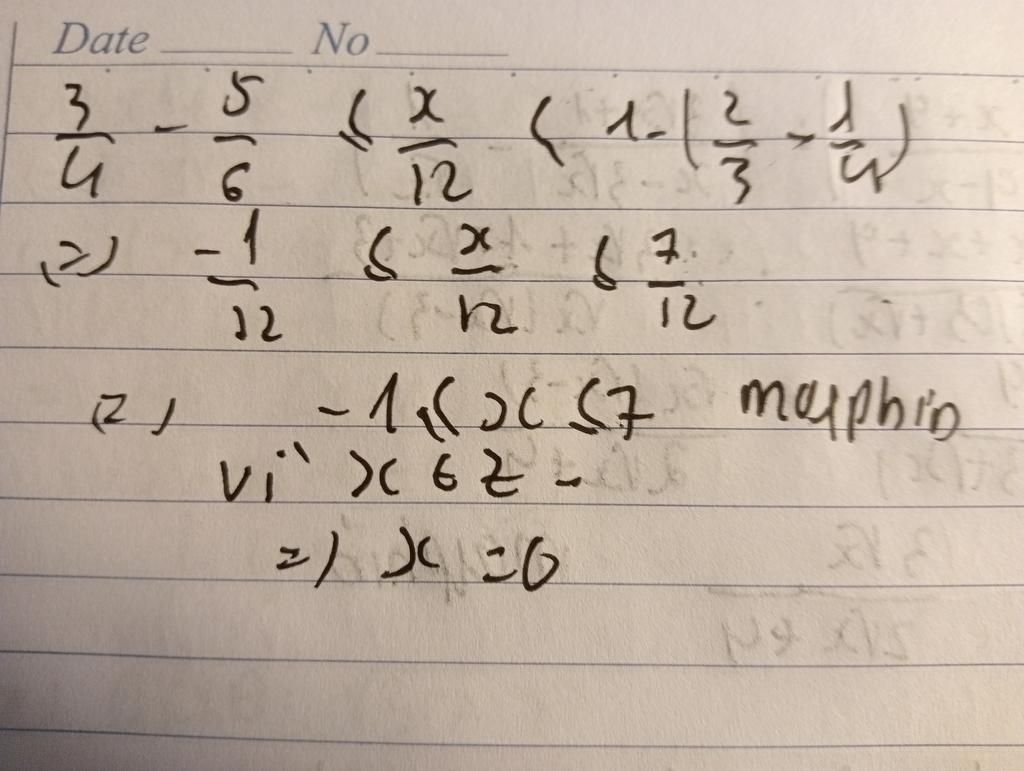 Date No
3/4 - 5/6 ≤ x/12 < 1-(2/3 - 1/4)
(=) -1/12 ≤ x/12 ≤ 7/12
(=) -1 ≤ x ≤ 7
vì x ∈ Z -
=) x = 0